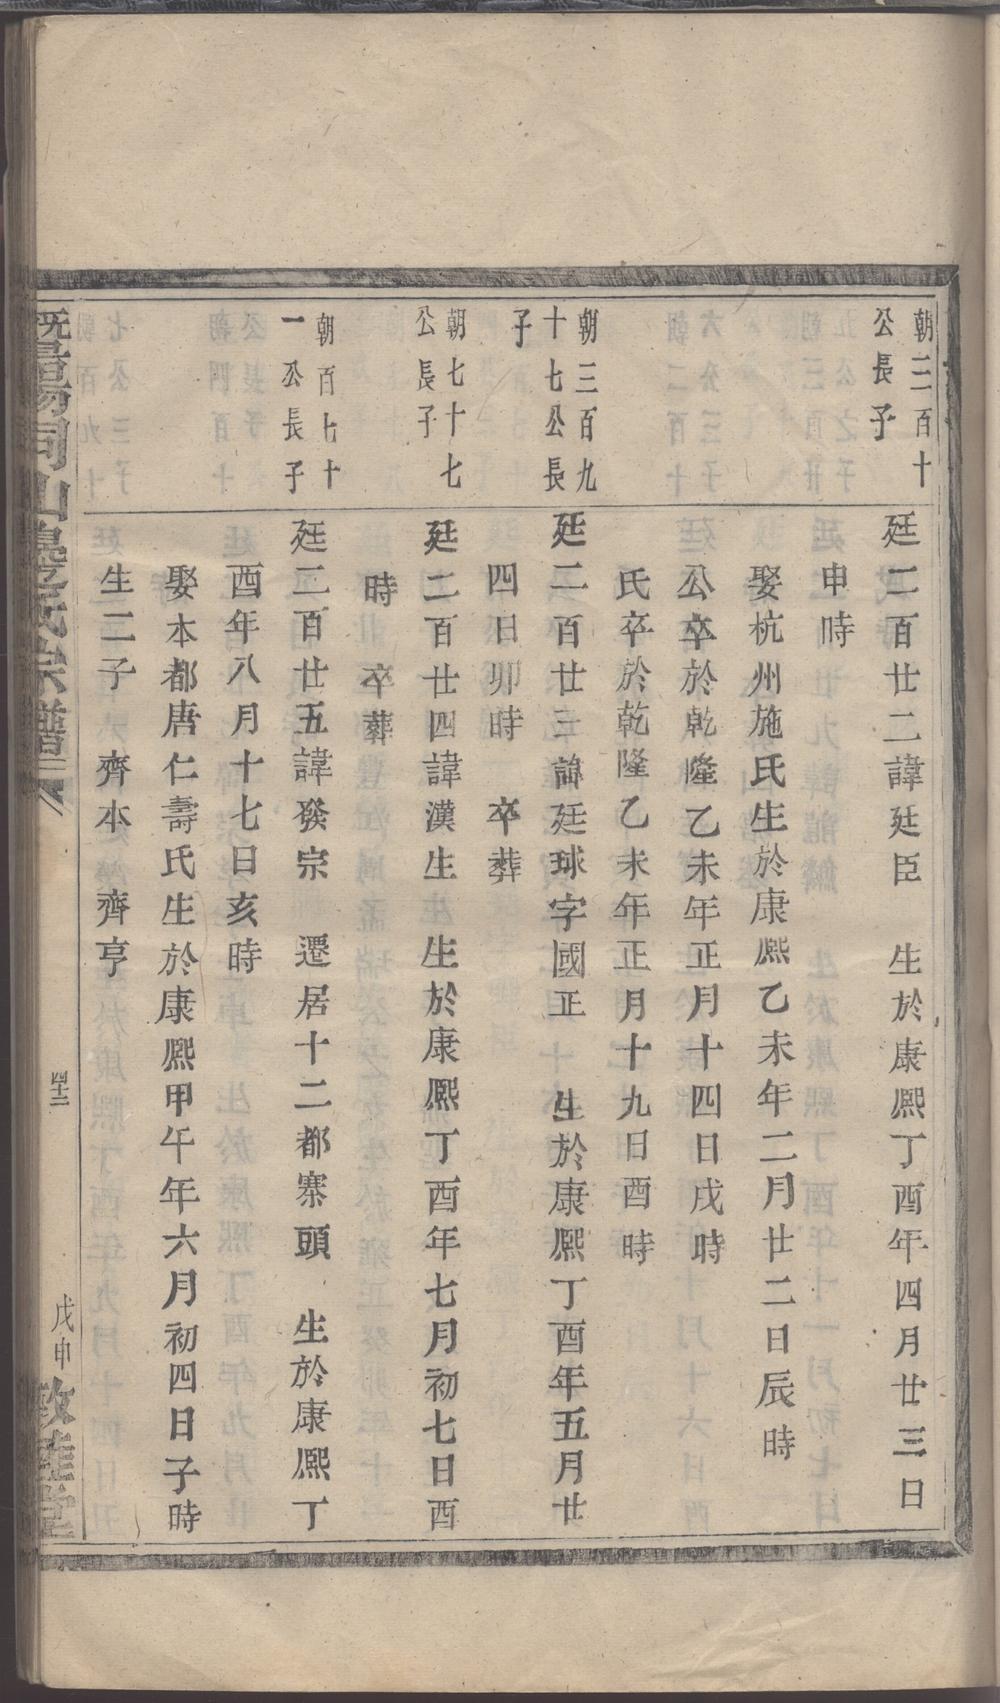 朝三百十
公長子
廷二百廿二諱廷臣　生於康熈丁酉年四月廿三日
申時
娶杭州施氏生於康熈乙未年二月廿二日辰時
公卒於乾隆乙未年正月十四日戌時
氏卒於乾隆乙未年正月十九日酉時
朝三百九
十七公長
子
廷二百廿三諱廷球字國正　生於康熈丁酉年五月廿
四日卯時　卒葬
朝七十七
公長子
廷二百廿四諱漢生　生於康熈丁酉年七月初七日酉
時　卒葬
朝百七十
一公長子
廷二百廿五諱癸宗　遷居十二都寨頭　生於康熈丁
酉年八月十七日亥時
娶本都唐仁壽氏生於康熈甲午年六月初四日子時
生二子　齊本　齊亨
暨陽同山邊氏宗譜
戊申
敦睦堂